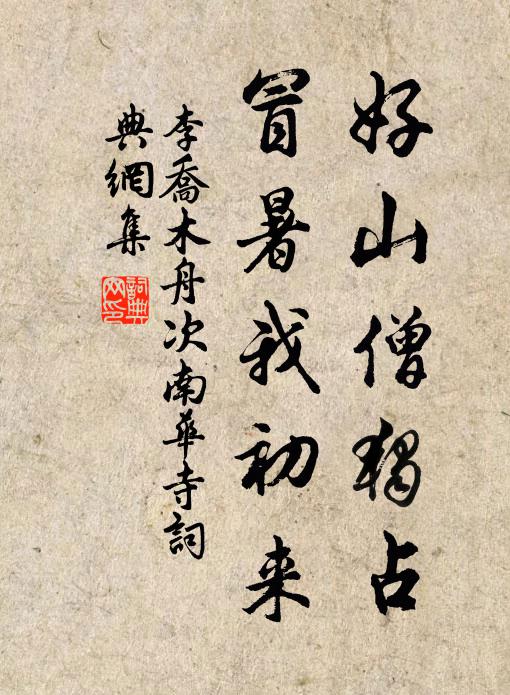 好山僧独占
冒暑我初来
李喬木舟次南華寺詞
典網集
詞典
网印